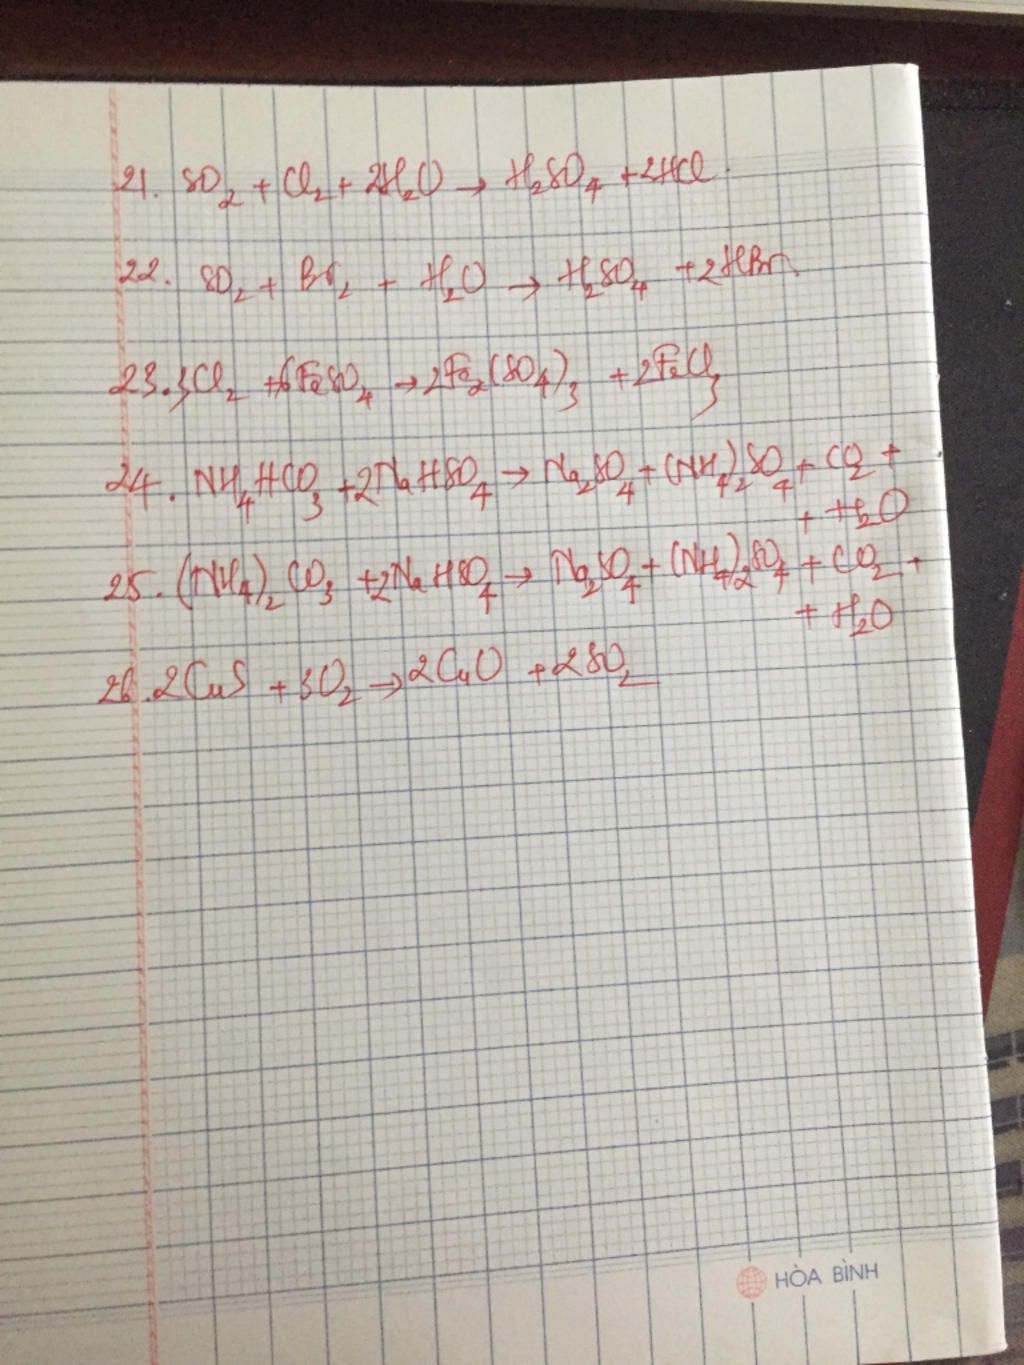 21. SO₂ + Cl₂ + 2H₂O → H₂SO₄ + 2HCl
22. SO₂ + Br₂ + H₂O → H₂SO₄ + 2HBr
23. 3Cl₂ + 6FeSO₄ → 2Fe₂(SO₄)₃ + 2FeCl₃
24. NH₄HCO₃ + 2NaHSO₄ → Na₂SO₄ + (NH₄)₂SO₄ + CO₂ +
+ H₂O
25. (NH₄)₂CO₃ + 2NaHSO₄ → Na₂SO₄ + (NH₄)₂SO₄ + CO₂ +
+ H₂O
26. 2CuS + 3O₂ → 2CuO + 2SO₂
HÒA BÌNH